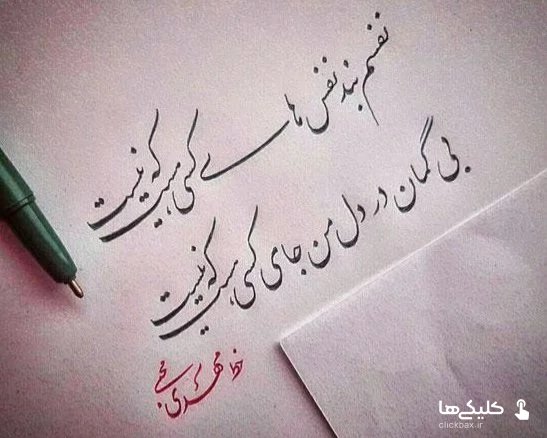 نفسم بند نفس های کسی هست که نیست
بی گمان در دل من جای کسی هست که نیست
مهدی
کلیکی‌ها
clickbax.ir